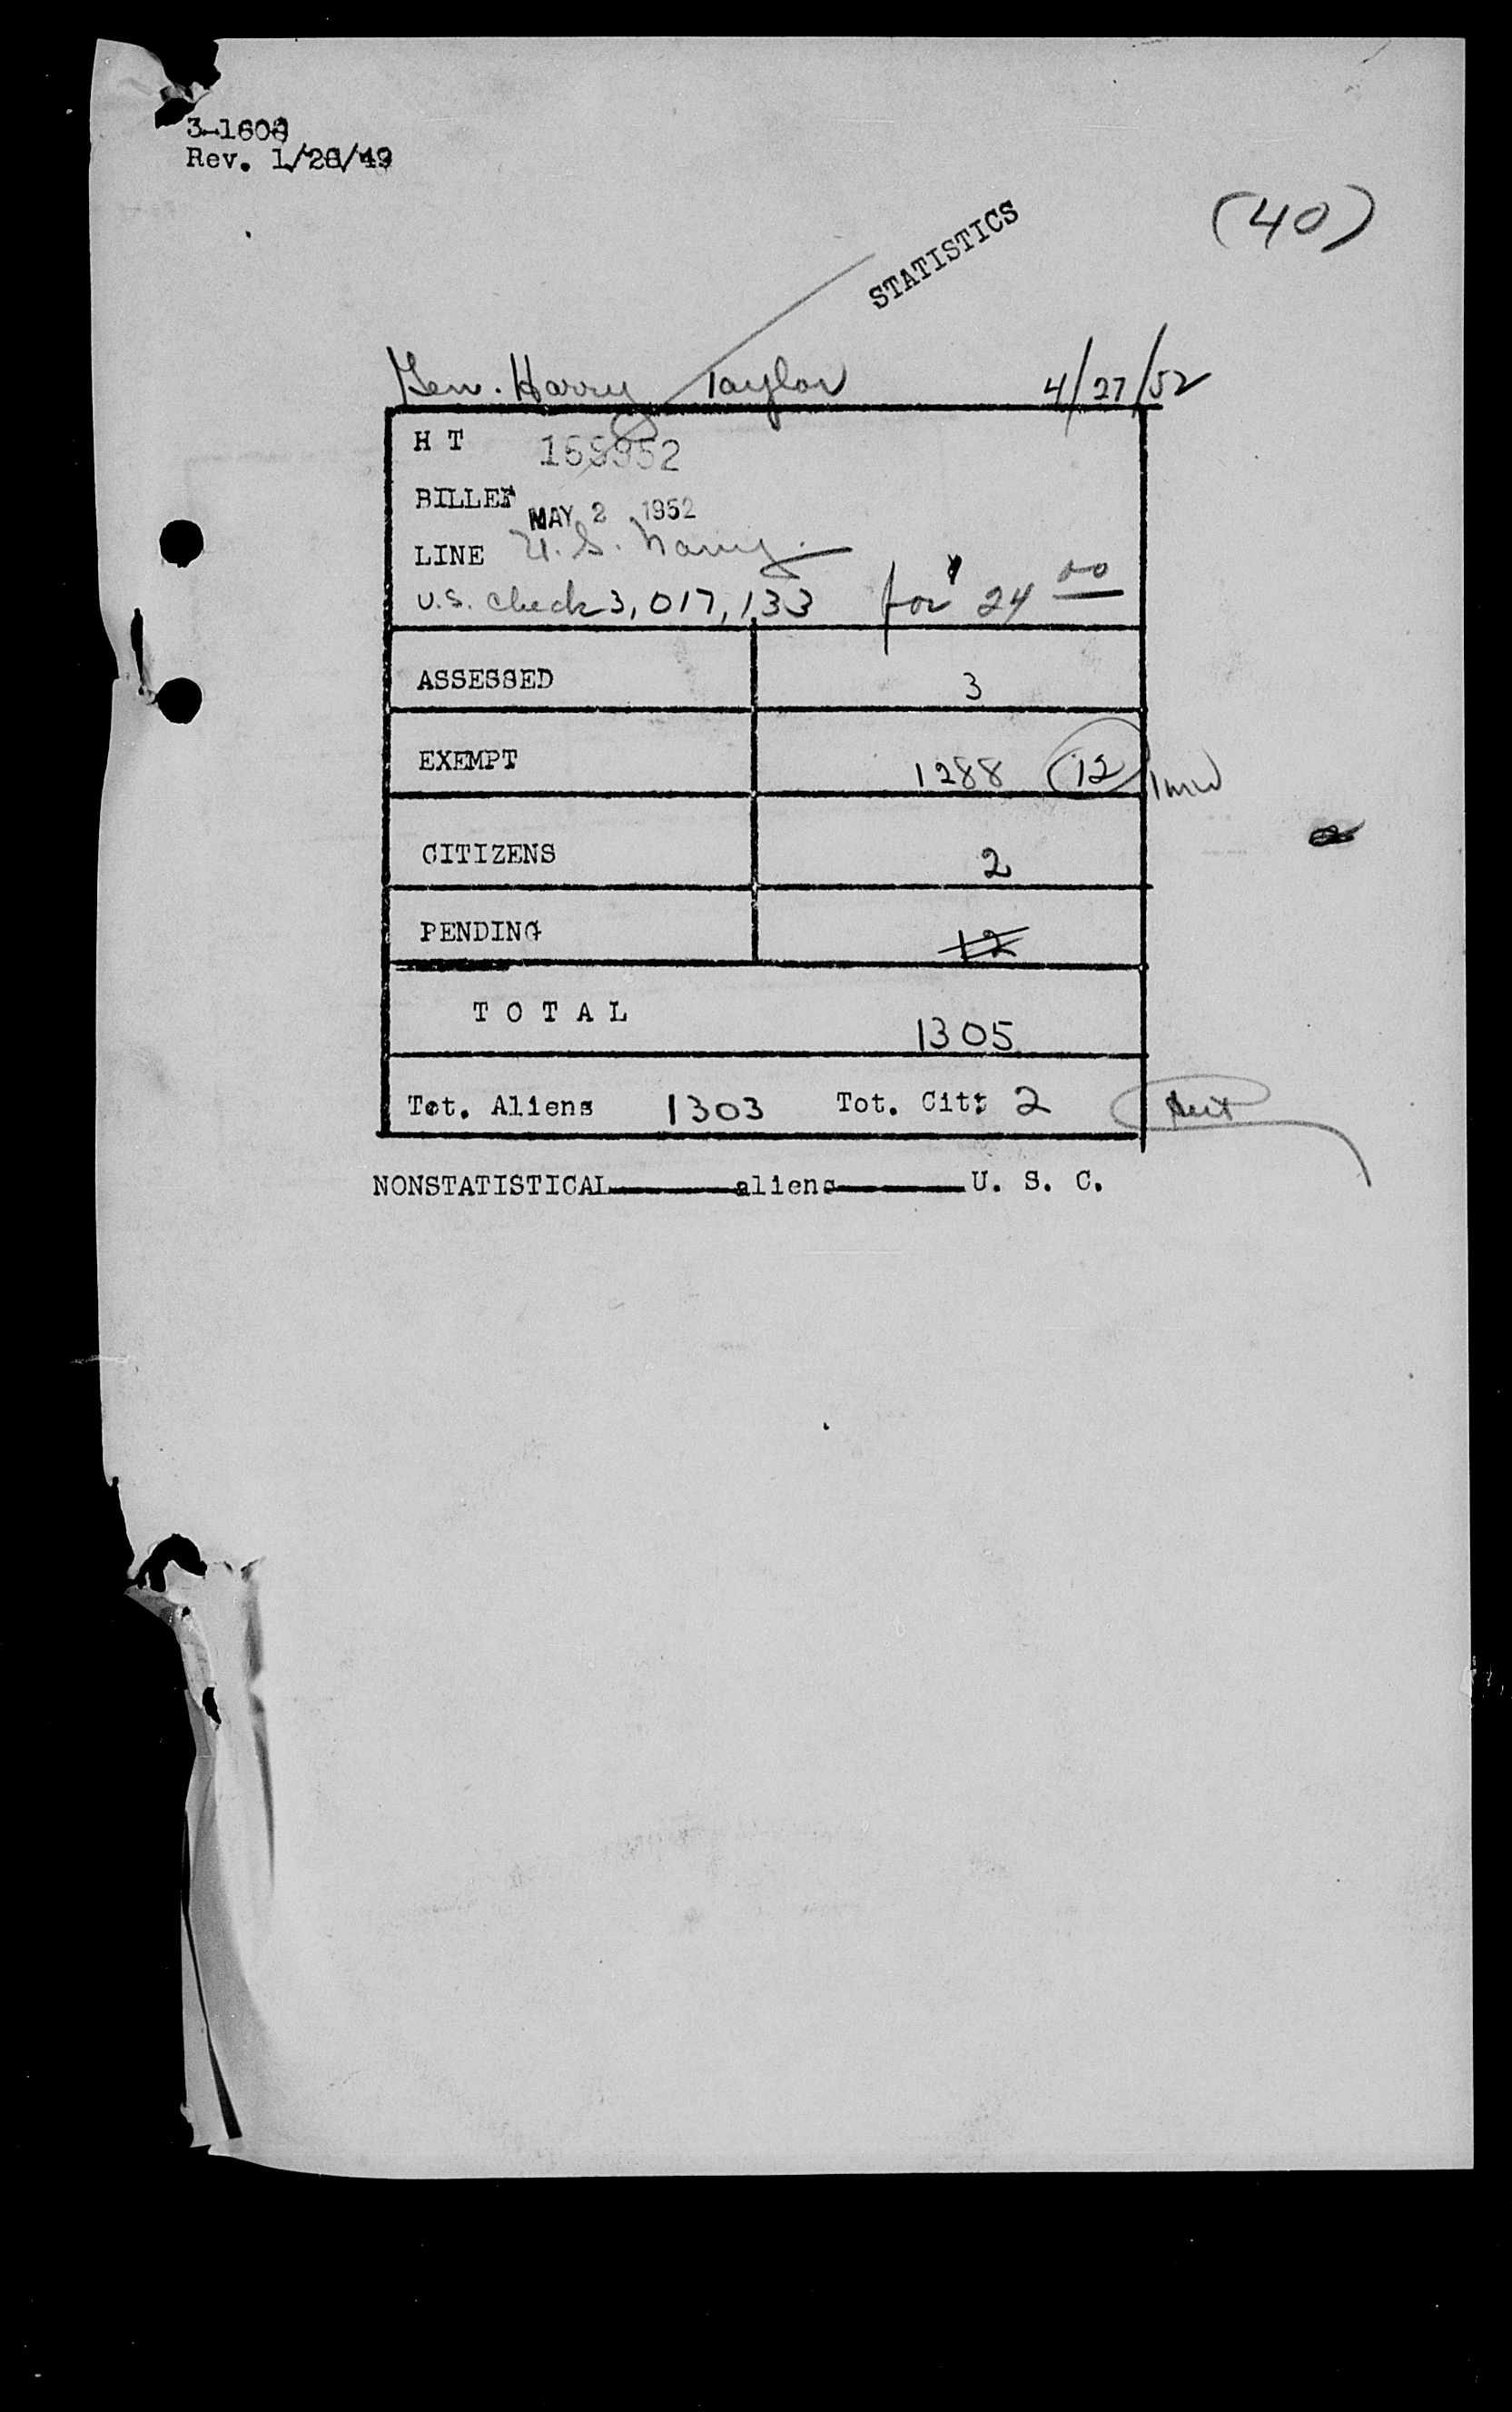 3-1608
Rev. 1/28/49
(40)
STATISTICS
Gen. Harry Taylor 4/27/52
H T
BILLET MAY 2 1952
LINE U.S. Navy.
U.S. check 3,017,133 for 24 00
ASSESSED 3
EXEMPT 1288 12
CITIZENS 2
PENDING 12
T O T A L 1305
Tot. Aliens 1303 Tot. Cit: 2
NONSTATISTICAL aliens U. S. C.